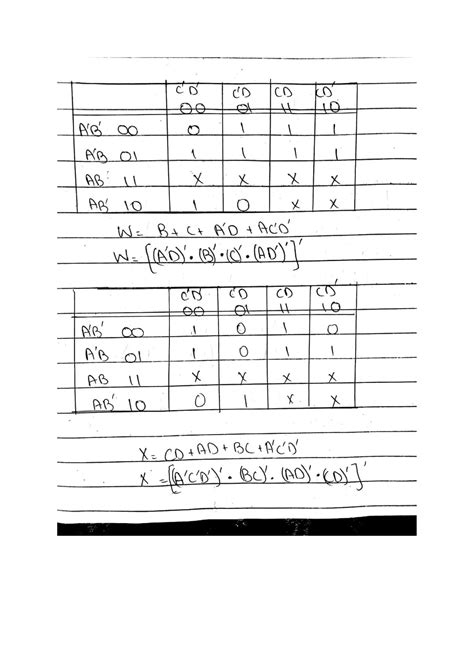 C'D' C'D CD CD'
00 01 11 10
A'B' 00 0 1 1 1
A'B 01 1 1 1 1
AB 11 X X X X
AB' 10 1 0 X X
W = B + C + A'D + AC'D'
W = [(A'D)' • (B)' • (C)' • (AD')']'
C'D' C'D CD CD'
00 01 11 10
A'B' 00 1 0 1 0
A'B 01 1 0 1 1
AB 11 X X X X
AB' 10 0 1 X X
X = CD + AD + BC + A'C'D'
X = [(A'C'D')' • (BC)' • (AD)' • (CD)']'